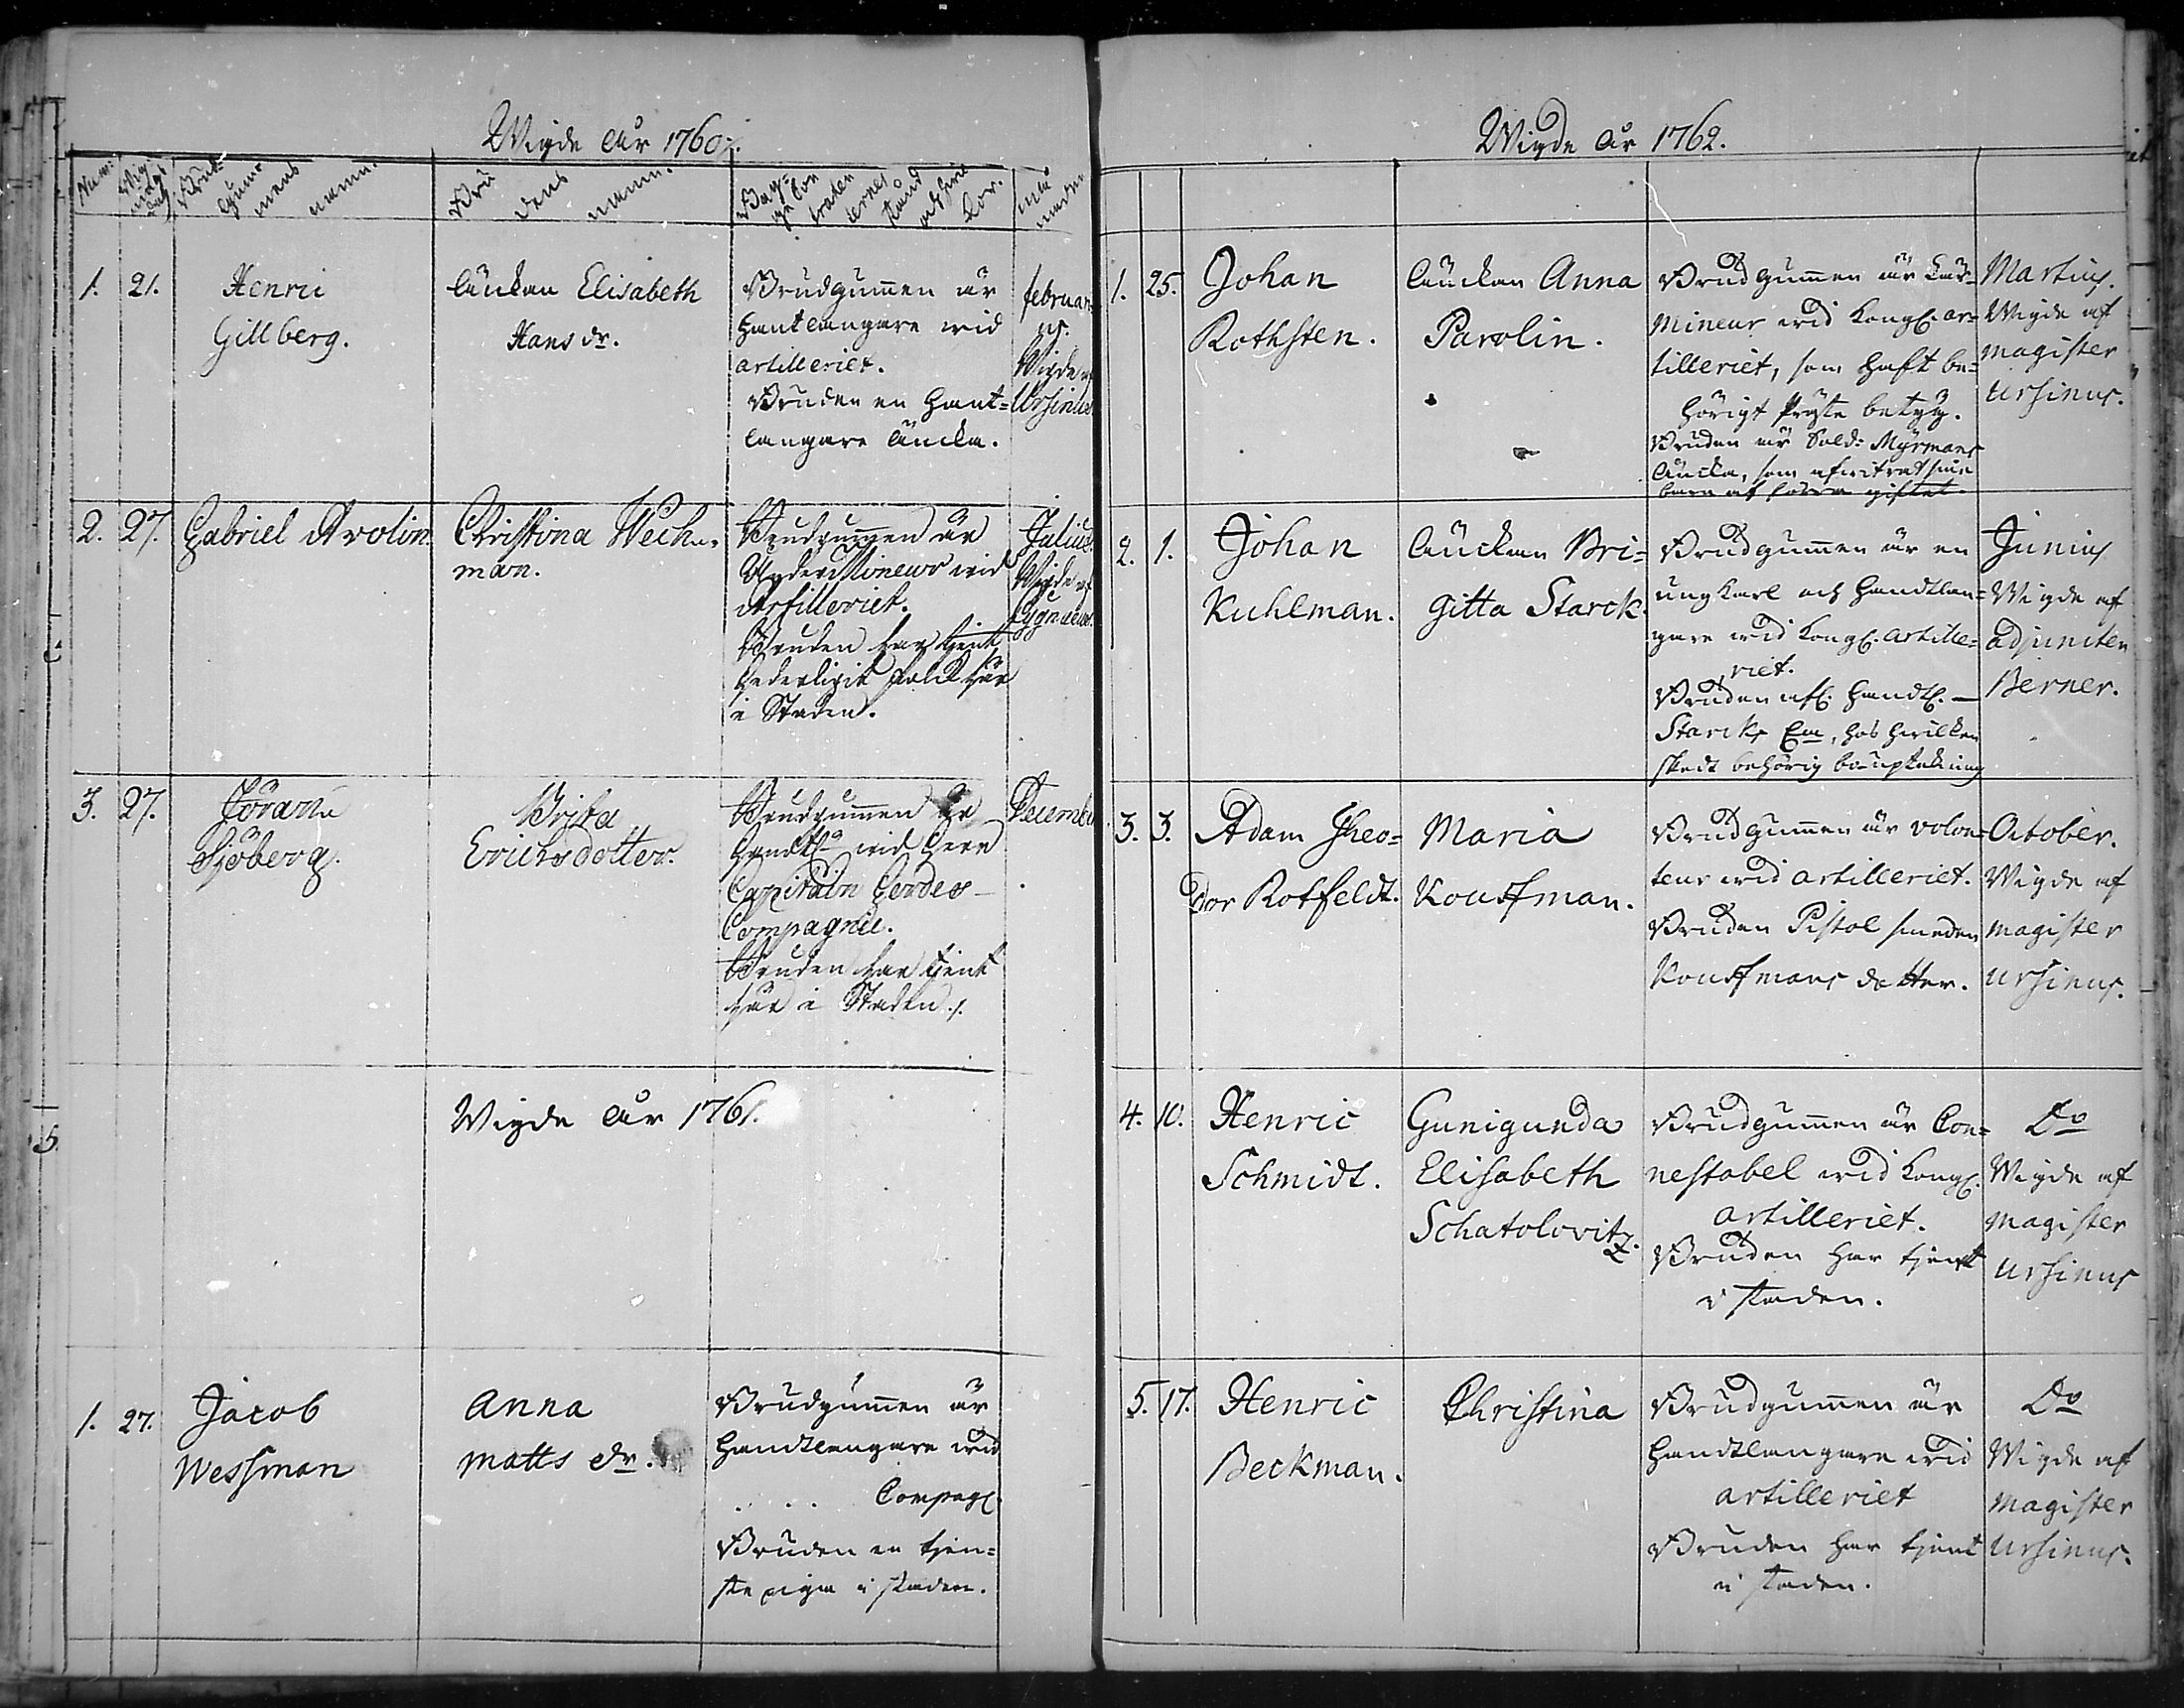 Wigde åhr 1760.
Num:
Wig-
nings
dag
Brud-
gum-
mens
namn.
Bru
dens
namn.
stånd
och
må
naden
1. 21.
Henric
Gillberg.
Änckan Elisabeth
Hans dr.
Brudgummen är
hantlangare wid
artilleriet.
Bruden en hant=
langare äncka.
februari
us.
Wigde af
Ursinus.
2. 27.
Gabriel Arolin.
Christina Weck-
man.
Brudgummen är
Under Mineur wid
Artilleriet.
Bruden har tjent
hederligit folck här
i Staden.
Julius.
Wigde af
Cygnæus.
3. 27.
Jöran
Sjöberg.
Brita
Erichsdotter.
Brudgummen är
wid Herr
Capitain Gerdes
Compagnie.
Bruden har tjent
här i Staden.
December
Wigde åhr 1761.
1. 27.
Jacob
Wessman
Anna
Matts dr.
Brudgummen är
Handtlangare wid
. . . . Compagl.
Bruden en tjen=
ste piga i staden.
Wigde år 1762.
1. 25.
Johan
Rothsten.
Änckan Anna
Parolin.
Brudgummen är
Mineur wid Kongl. ar=
tilleriet, som haft be=
hörigt Präste betyg.
Bruden är Sold: Myrmans
Äncka, som afwitrat sine
barn af förra giftet.
Martius.
Wigde af
magister
Ursinus.
2. 1.
Johan
Kuhlman.
Änckan Bri=
gitta Starck.
Brudgummen är en
ung karl och handtlan=
gare wid Kongl. artille=
riet.
Bruden afl. Handtl.
Starcks Enka, hos hwilken
skedt behörig bouptekning
Junius
Wigde af
adjuncten
Berner.
3. 3.
Adam Theo=
dor Rotfeldt.
Maria
Kouffman.
Brudgummen är volon=
teur wid artilleriet.
Bruden Pistol smeden
Kouffmans dotter.
October.
Wigde af
magister
Ursinus.
4. 10.
Henric
Schmidt.
Gunigunda
Elisabeth
Schatolovitz.
Brudgummen är Con=
nestabel wid Kongl.
artilleriet.
Bruden har tjent
i staden.
Do
Wigde af
magister
Ursinus
5. 17.
Henric
Beckman.
Christina
Brudgummen är
Handtlangare wid
artilleriet
Bruden har tjent
i staden.
Do
Wigde af
magister
Ursinus.